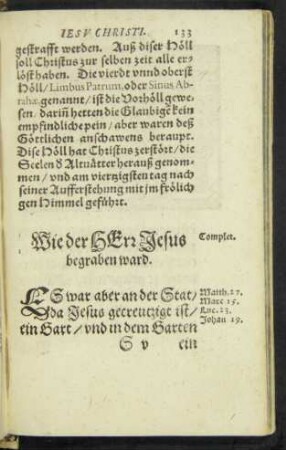 IESV CHRISTI. 133
gestrafft werden. Auß diser Höll
soll Christus zur selben zeit alle er-
löst haben. Die vierdt vnnd oberst
Höll / Limbus Patrum, oder Sinus Ab-
rahæ genannt / ist die Vorhöll gewe-
sen / dariñ hetten die Glaubigē kein
empfindliche pein / aber waren deß
Göttlichen anschawens beraupt.
Dise Höll hat Christus zerstört / die
Seelen d̕ Altuätter herauß genom-
men / vnd am viertzigsten tag nach
seiner Aufferstehung mit jm frölich
gen Himmel geführt.
Wie der HErr Jesus
begraben ward.
Complet.
ES war aber an der Stat /
da Jesus gecreutzigt ist /
ein Gart / vnd in dem Garten
Matth. 27.
Marc 15.
Luc. 23.
Johan 19.
S v ein